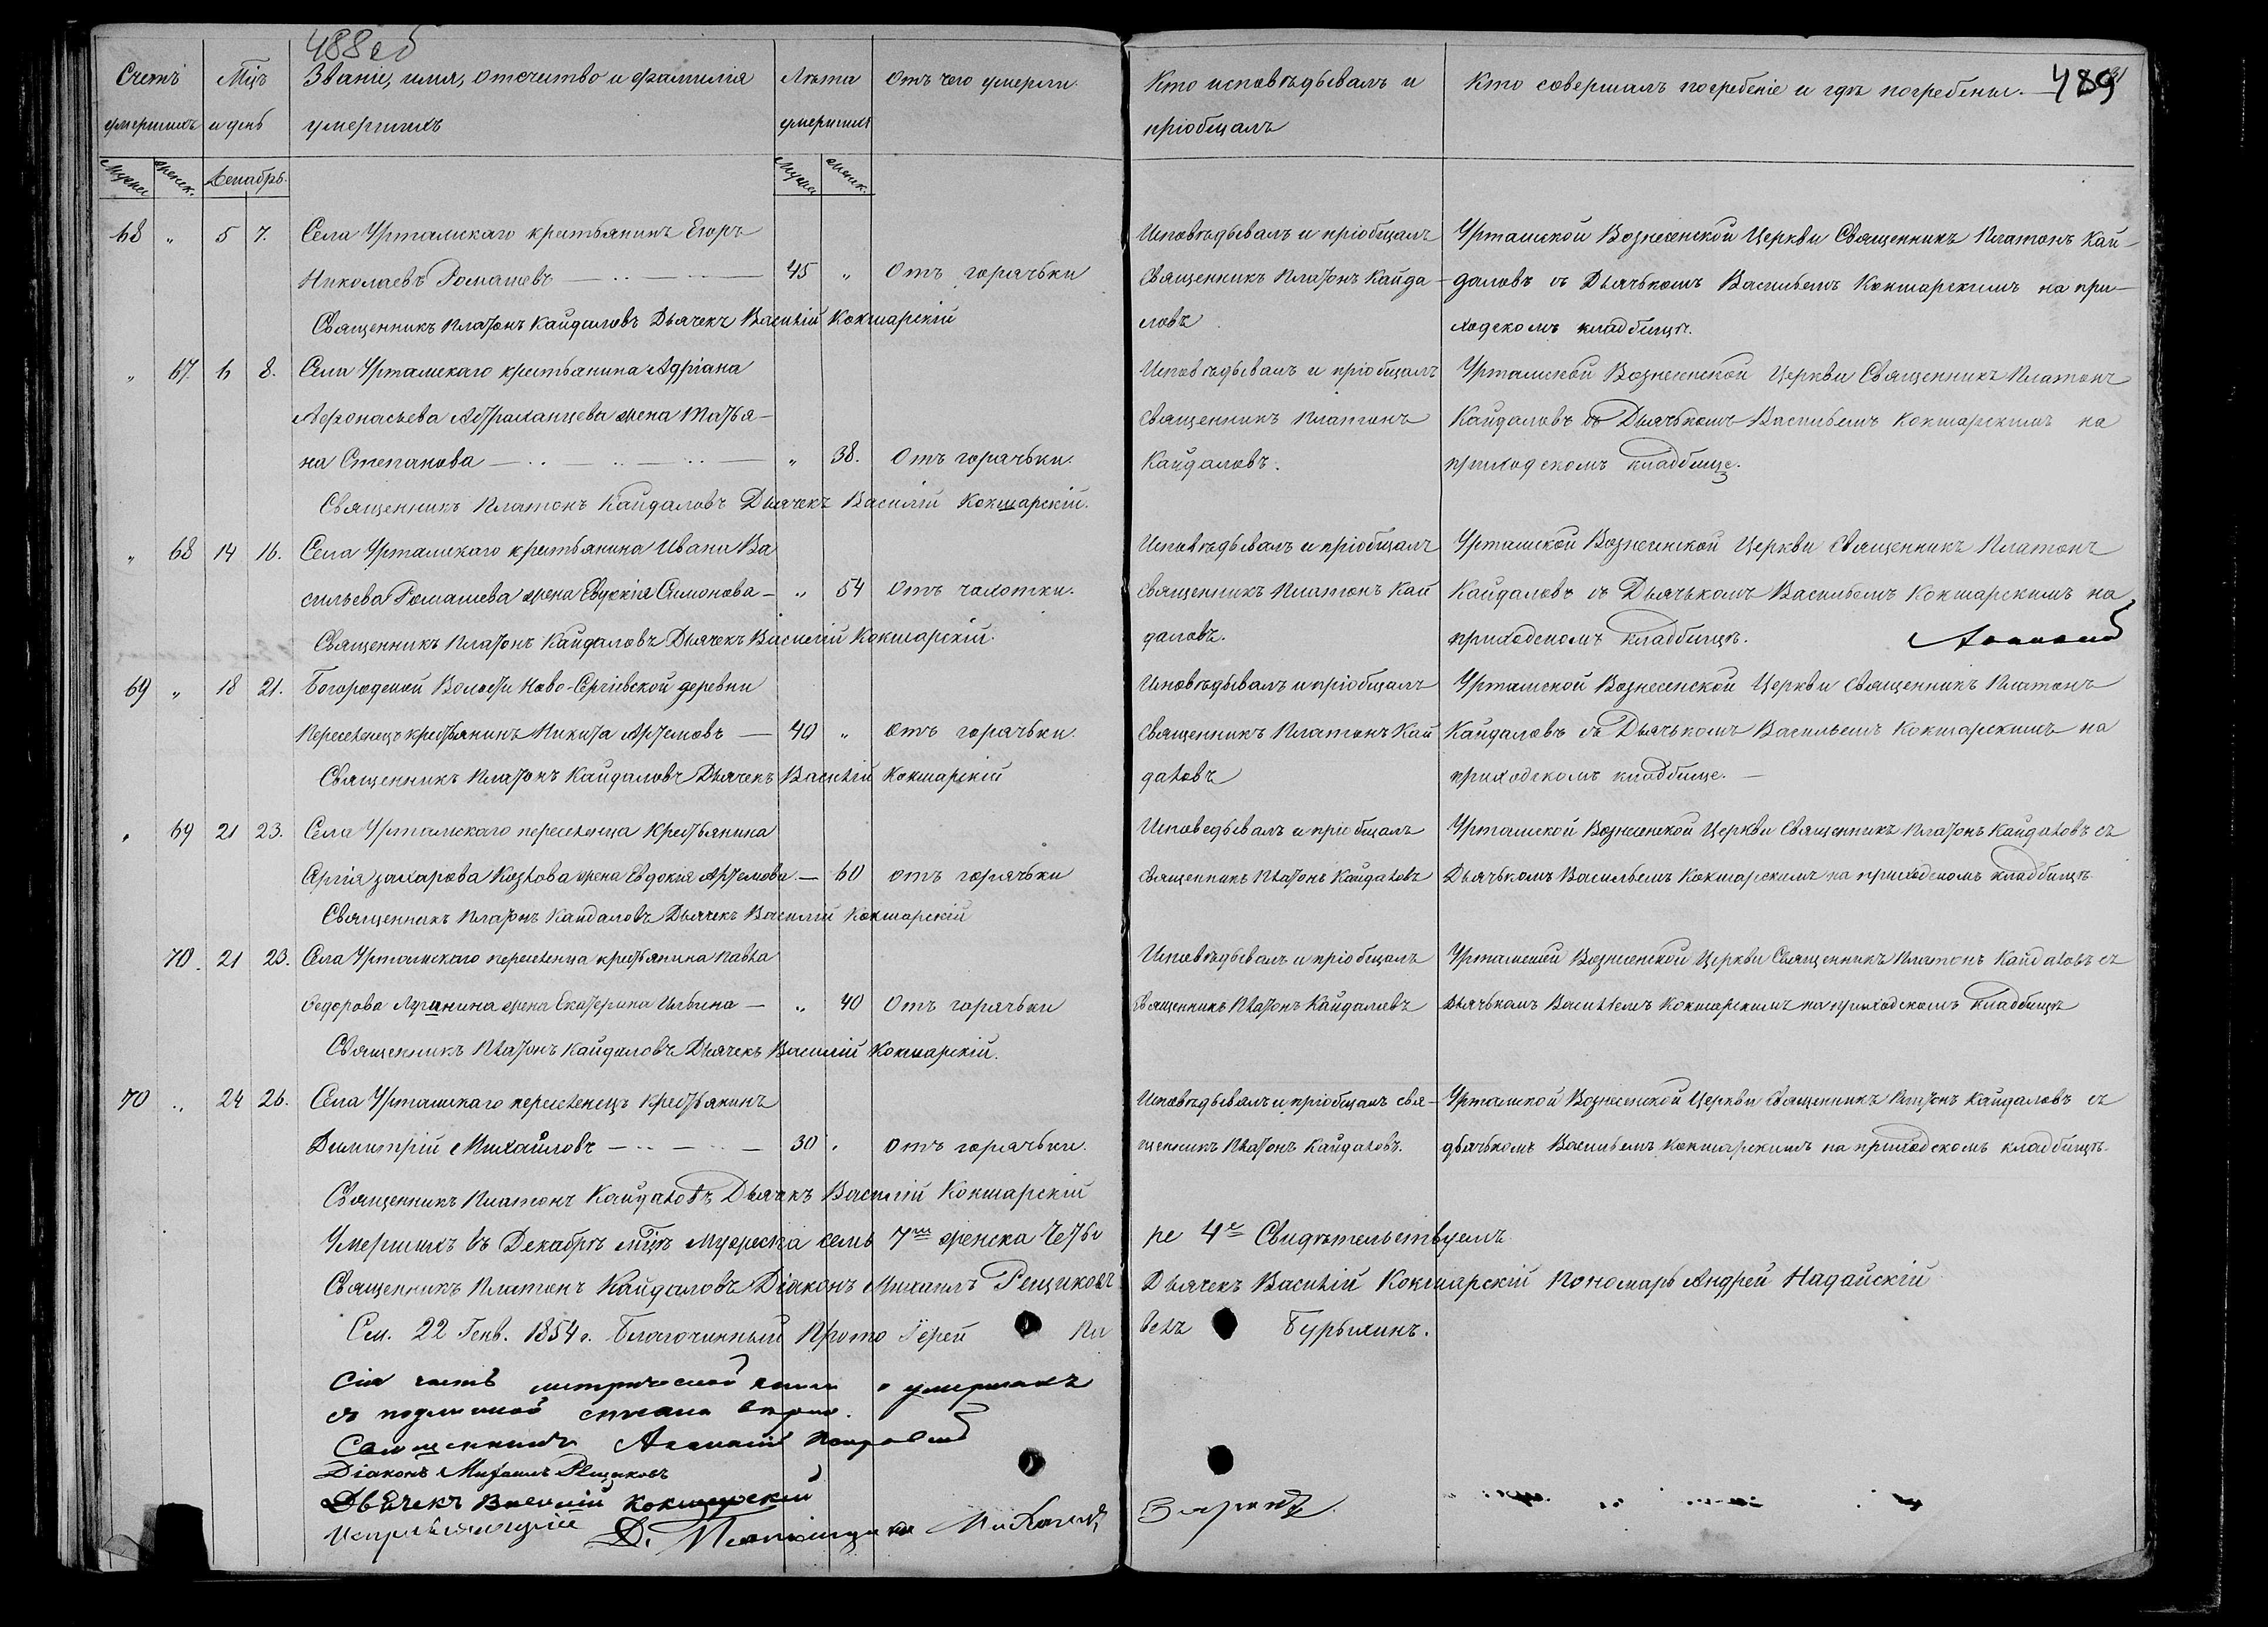 488 об
Счетъ умершихъ
Мцъ и день
Званіе, имя, отечитво и фамилія умершихъ
Лѣта умершихъ
отъ чего умерли.
Кто исповѣдывалъ и пріобщалъ
Кто совершалъ погребеніе и гдѣ погребены.
489
Мужес женск.
Декабрь.
Мужес женск.
68 „ 5 7. Села Уртамскаго крестьянинъ Егоръ
Николаевъ Ромашевъ 45 „ Отъ горячьки
Священникъ Платонъ Кайдаловъ Дьячекъ Василій Кокшарскій
Исповѣдывалъ и пріобщалъ
Священникъ Платонъ Кайда-
ловъ
Уртамской Вознесенской Церкви Священникъ Платонъ Кай-
даловъ съ Дьячькомъ Васильемъ Кокшарскимъ на при-
ходскомъ кладбищѣ.
„ 67. 6 8. Села Уртамскаго крестьянина Адріана
Афонасьева Астраханцева жена Татья-
на Степанова „ 38. Отъ горячьки.
Священникъ Платонъ Кайдаловъ Дьячекъ Василій Кокшарскій.
Исповѣдывалъ и пріобщалъ
Священникъ Платонъ
Кайдаловъ.
Уртамской Вознесенской Церкви Священникъ Платонъ
Кайдаловъ съ Дьячькомъ Васильемъ Кокшарскимъ на
приходскомъ кладбище.
„ 68 14 16. Села Уртамскаго крестьянина Ивана Ва
сильева Ромашева жена Евдокія Симонова „ 54 Отъ чахотки.
Священникъ Платонъ Кайдаловъ Дьячекъ Василій Кокшарскій.
Исповѣдывалъ и пріобщалъ
Священникъ Платонъ Кай
даловъ.
Уртамской Вознесенской Церкви Священникъ Платонъ
Кайдаловъ съ Дьячькомъ Васильемъ Кокшарскимъ на
приходскомъ кладбищѣ.
69 „ 18 21. Богородской Волости Ново-Сергіевской деревни
Переселенецъ крестьянинъ Никита Артемовъ 40 „ Отъ горячьки.
Священникъ Платонъ Кайдаловъ Дьячекъ Василій Кокшарскій
Исповѣдывалъ и пріобщалъ
Священникъ Платонъ Кай
даловъ
Уртамской Вознесенской Церкви Священникъ Платонъ
Кайдаловъ съ Дьячькомъ Васильемъ Кокшарскимъ на
приходскомъ кладбище.
„ 69 21 23. Села Уртамскаго переселенца Крестьянина
Сергія Захарова Козлова жена Евдокія Артемова 60 отъ горячьки
Священникъ Платонъ Кайдаловъ Дьячекъ Василій Кокшарскій
Исповедывалъ и пріобщалъ
Священникъ Платонъ Кайдаловъ
Уртамской Вознесенской Церкви Священникъ Платонъ Кайдаловъ съ
Дьячькомъ Васильемъ Кокшарскимъ на приходскомъ кладбищѣ
70. 21 23. Села Уртамскаго переселенца крестьянина Павла
Федорова Лучанина жена Екатерина Ильина „ 40 Отъ горячьки
Священникъ Платонъ Кайдаловъ Дьячекъ Василій Кокшарскій.
Исповѣдывалъ и пріобщалъ
Священникъ Платонъ Кайдаловъ
Уртамской Вознесенской Церкви Священникъ Платонъ Кайдаловъ съ
Дьячькомъ Васильемъ Кокшарскимъ на приходскомъ кладбищѣ
70 „ 24 26. Села Уртамскаго переселенецъ Крестьянинъ
Димитрій Михайловъ 30 „ Отъ горячьки.
Священникъ Платонъ Кайдаловъ Дьячекъ Василій Кокшарскій
Исповѣдывалъ и пріобщалъ свя-
щенникъ Платонъ Кайдаловъ.
Уртамской Вознесенской Церкви Священникъ Платонъ Кайдаловъ съ
дьячькомъ Васильемъ Кокшарскимъ на приходскомъ кладбищѣ.
Умершихъ въ Декабрѣ мцѣ мужеска семь 7мь женска Четы ре 4е Свидѣтельствуемъ
Священникъ Платонъ Кайдаловъ Діаконъ Михаилъ Рещиковъ Дьячекъ Василій Кокшарскій Пономарь Андрей Надайскій
См. 22 Генв. 1854 г. Благочинный Прото Іерей Па велъ Бурыхинъ.
Сія часть метрической книги о умершихъ
съ подлинной вѣрна.
Священникъ
Діаконъ Михаилъ Рещиковъ
Дьячекъ Василій Кокшарскій